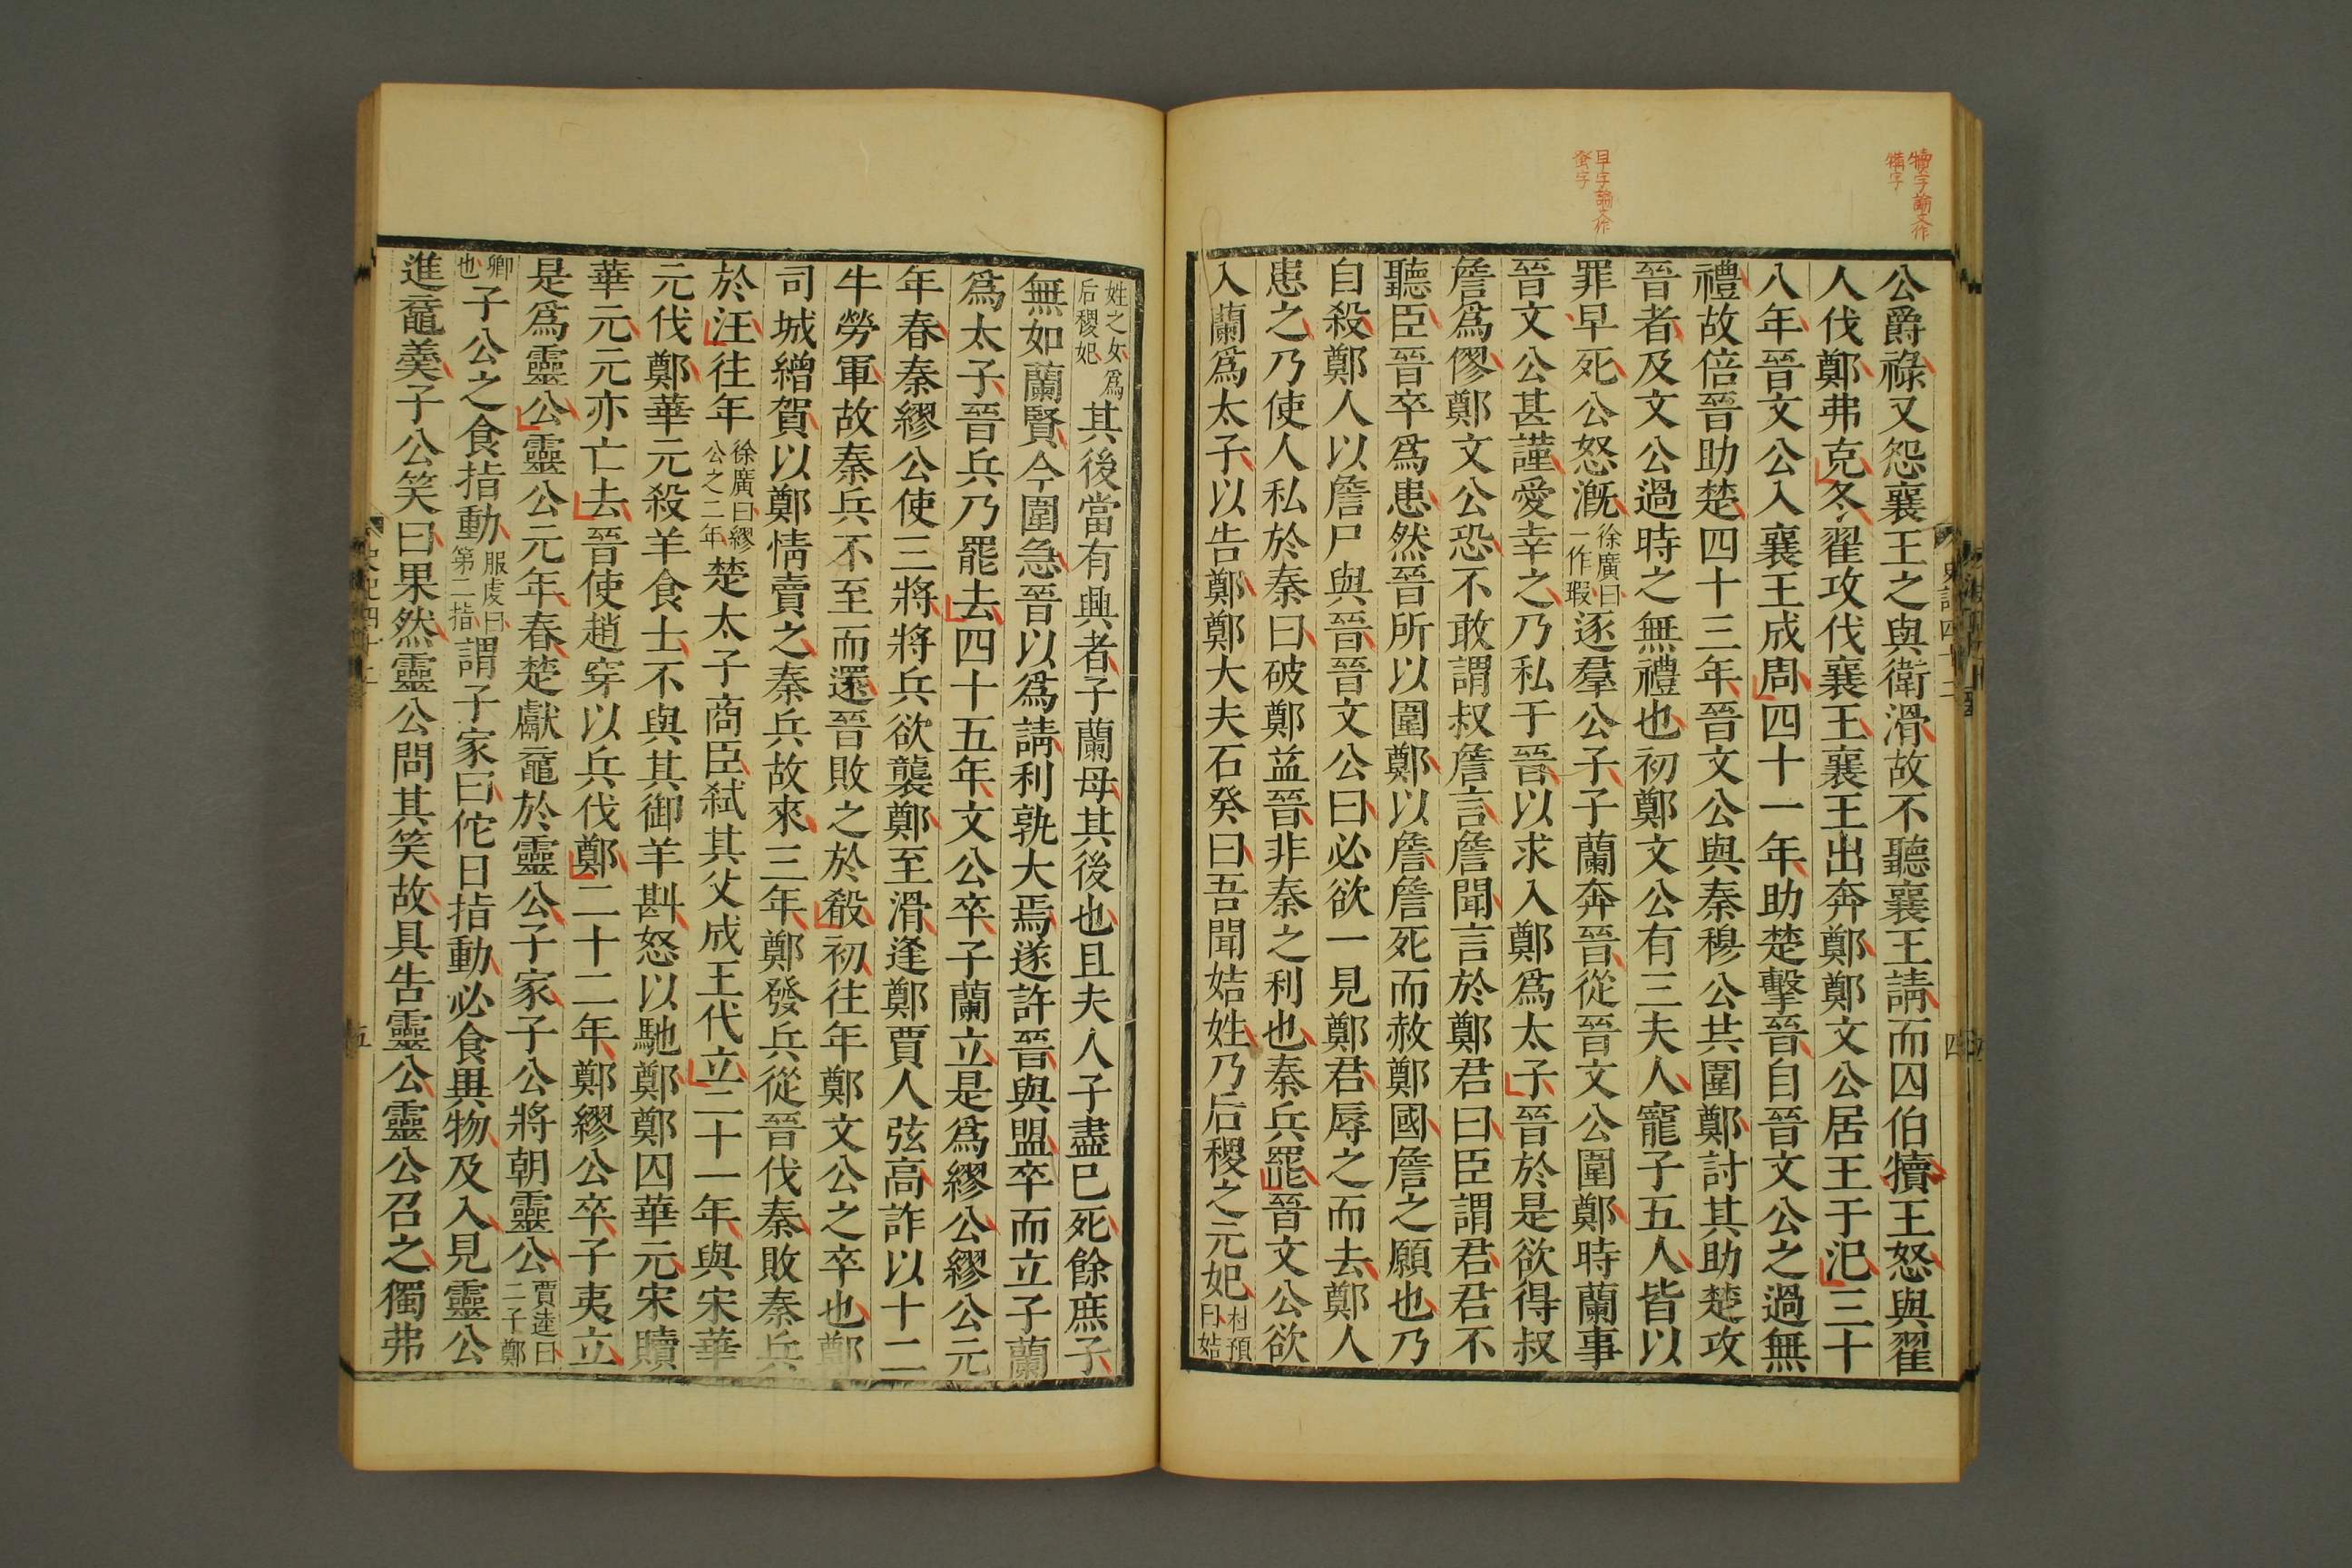 犢字諭文作
犕字
早字諭文作
蚤字
公爵祿又怨襄王之與衛滑故不聽襄王請而囚伯犢王怒與翟
人伐鄭弗克冬翟攻伐襄王襄王出奔鄭鄭文公居王于汜三十
八年晉文公入襄王成周四十一年助楚擊晉自晉文公之過無
禮故倍晉助楚四十三年晉文公與秦穆公共圍鄭討其助楚攻
晉者及文公過時之無禮也初鄭文公有三夫人寵子五人皆以
罪早死公怒溉徐廣曰一作瑕逐羣公子子蘭奔晉從晉文公圍鄭時蘭事
晉文公甚謹愛幸之乃私于晉以求入鄭爲太子晉於是欲得叔
詹爲僇鄭文公恐不敢謂叔詹言詹聞言於鄭君曰臣謂君君不
聽臣晉卒爲患然晉所以圍鄭以詹詹死而赦鄭國詹之願也乃
自殺鄭人以詹尸與晉晉文公曰必欲一見鄭君辱之而去鄭人
患之乃使人私於秦曰破鄭益晉非秦之利也秦兵罷晉文公欲
入蘭爲太子以告鄭鄭大夫石癸曰吾聞姞姓乃后稷之元妃杜預曰姞
史記四十二
四
姓之女爲后稷妃其後當有興者子蘭母其後也且夫人子盡已死餘庶子
無如蘭賢今圍急晉以爲請利孰大焉遂許晉與盟卒而立子蘭
爲太子晉兵乃罷去四十五年文公卒子蘭立是爲繆公繆公元
年春秦繆公使三將將兵欲襲鄭至滑逢鄭賈人弦高詐以十二
牛勞軍故秦兵不至而還晉敗之於殽初往年鄭文公之卒也鄭
司城繒賀以鄭情賣之秦兵故來三年鄭發兵從晉伐秦敗秦兵
於汪往年徐廣曰繆公之二年楚太子商臣弑其父成王代立二十一年與宋華
元伐鄭華元殺羊食士不與其御羊斟怒以馳鄭鄭囚華元宋贖
華元元亦亡去晉使趙穿以兵伐鄭二十二年鄭繆公卒子夷立
是爲靈公靈公元年春楚獻黿於靈公子家子公將朝靈公賈逵曰二子鄭
卿也子公之食指動服虔曰第二指謂子家曰佗日指動必食異物及入見靈公
進黿羹子公笑曰果然靈公問其笑故具告靈公靈公召之獨弗
史記四十二
五